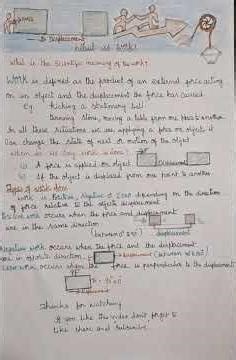 Displacement
What is Work?
What is the Scientific meaning of the work?
WORK is defined as the product of an external force acting
on an object and the displacement the force has caused.
Eg. Kicking a stationary ball
moving a table from one place to another
In all these situations we are applying a force on object, it
can change the state of rest or motion of the object
When can we say work is done?
i) A force is applied on object
Displacement
ii) If the object is displaced from one point to another
Types of work done
Work is Positive, Negative or Zero depending on the direction
of force relative to the objects displacement
Positive work occurs when the force and displacement
are in the same direction
Negative work occurs when the force and the displacement
are in opposite direction
Zero work occurs when the force is perpendicular to the displacement
Thanks for watching
If you like this video don't forget to
Like share and Subscribe